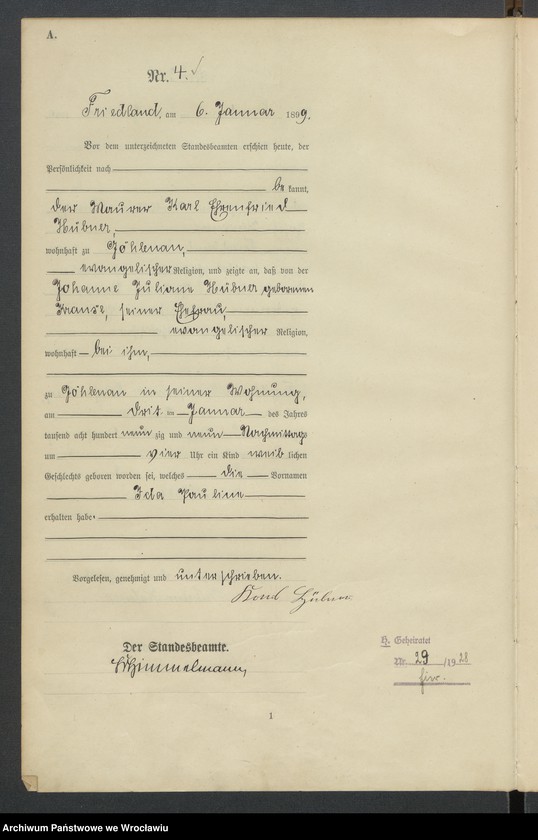 A.
Nr. 4.
Friedland, am 6. Januar 1899.
Vor dem unterzeichneten Standesbeamten erschien heute, der
Persönlichkeit nach
be kannt,
der Maurer Karl Ehrenfried
Hübner,
wohnhaft zu Göhlenau,
evangelischer Religion, und zeigte an, daß von der
Johanne Juliane Hübner geborenen
Krause, seiner Ehefrau,
evangelischer Religion,
wohnhaft bei ihm,
zu Göhlenau in seiner Wohnung,
am drit en Januar des Jahres
tausend acht hundert neun zig und neun Nachmittags
um vier Uhr ein Kind weib lichen
Geschlechts geboren worden sei, welches die Vornamen
Ida Pauline
erhalten habe.
Vorgelesen, genehmigt und unterschrieben.
Hübner.
Der Standesbeamte.
Schimmelmann,
H. Geheiratet
Nr. 29 /19 28
hier.
1
Archiwum Państwowe we Wrocławiu